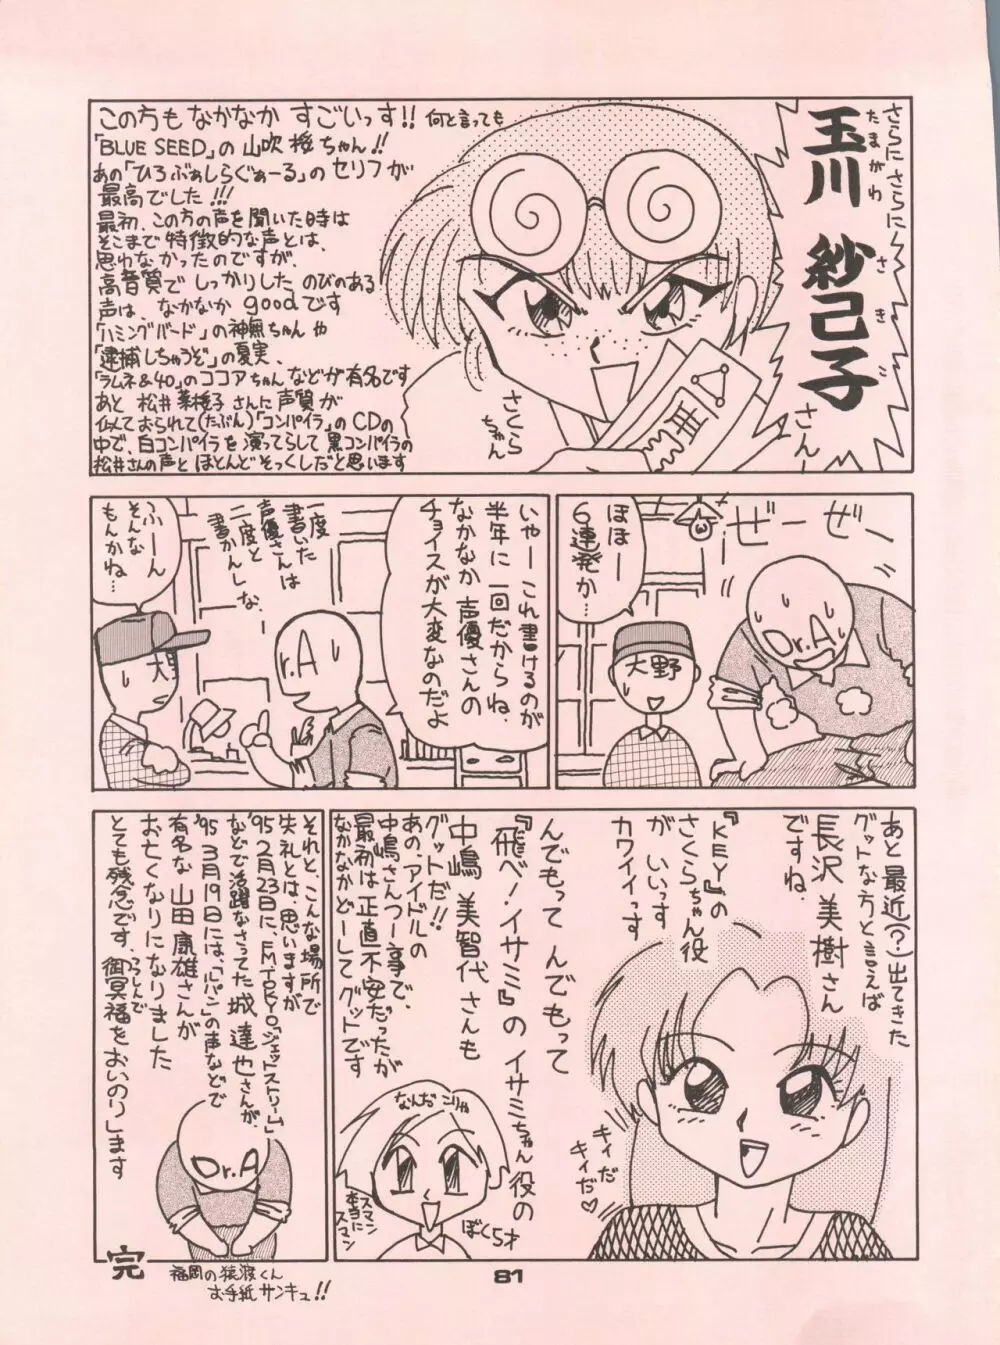 さらにさらに
玉川 紗己子
たまがわ さきこ
さんー
この方もなかなか すごいっす!! 何と言っても
「BLUE SEED」の山吹桜ちゃん!!
あの「ひろぶぁしらぐぁーる」のセリフが
最高でした!!!
最初、この方の声を聞いた時は
そこまで特徴的な声とは、
思わなかったのですが、
高音質でしっかりした のびのある
声は なかなか goodです
「ハミングバード」の神無ちゃんや
「逮捕しちゃうぞ」の夏実、
「ラムネ&40」のココアちゃんなどが有名です
あと 松井菜桜子さんに声質が
似ておられて(たぶん)「コンパイラ」のCDの
中で、白コンパイラを演ってらして黒コンパイラの
松井さんの声と ほとんどそっくしだと思います
さくら
ちゃん
ぜーぜー
ほほー
6連発か…
Dr.A
大野
いやーこれ書けるのが
半年に一回だからね、
なかなか声優さんの
チョイスが大変なのだよ
一度
書いた
声優さんは
二度と
書かんしな…
ふーん
そんな
もんかね…
Dr.A
大野
あと最近(?)出てきた
グットな方と言えば
長沢 美樹さん
ですね。
『KEY』の
さくらちゃん役
がいいっす
カワイイっす
キィだ
キィだ♡
んでもって んでもって
『飛べ!イサミ』のイサミちゃん役の
中嶋 美智代さんも
グットだ!!
あの、アイドルの
中嶋さんつー事で、
最初は正直不安だったが
なかなかどーしてグットです
なんだ こりゃ
スマン
本当に
スマン
ぼくら才
それと、こんな場所で
失礼とは、思いますが
'95 2月23日に、F.M.TOKYO「ジェットストリーム」
などで活躍なさってた 城 達也さんが、
'95 3月19日には、「ルパン」の声などで
有名な 山田 康雄さんが
お亡くなりになりました
とても残念です、つつしんで
御冥福をおいのりします
Dr.A
完
福岡の猿渡くん
お手紙サンキュ!!
81